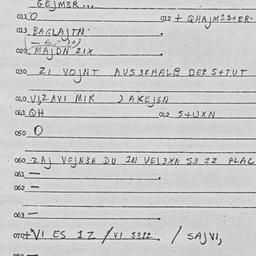 GEJM3R...
011 O 012 + QHAJM1S+ER-
013 BAGLAJTN.
020 MAJDN ZIX
030 ZI VOJNT AUS3RHALB DER S+TUT
040 VJZAVI MIR
041 QH 042 S+UXN
050 O
060 ZAJ VOJN3N DU IN VEL3XN S3 IZ PLAC
061 —
062 —
063 —
070 +VI ES IZ / VI S3IZ. / SAJVI,